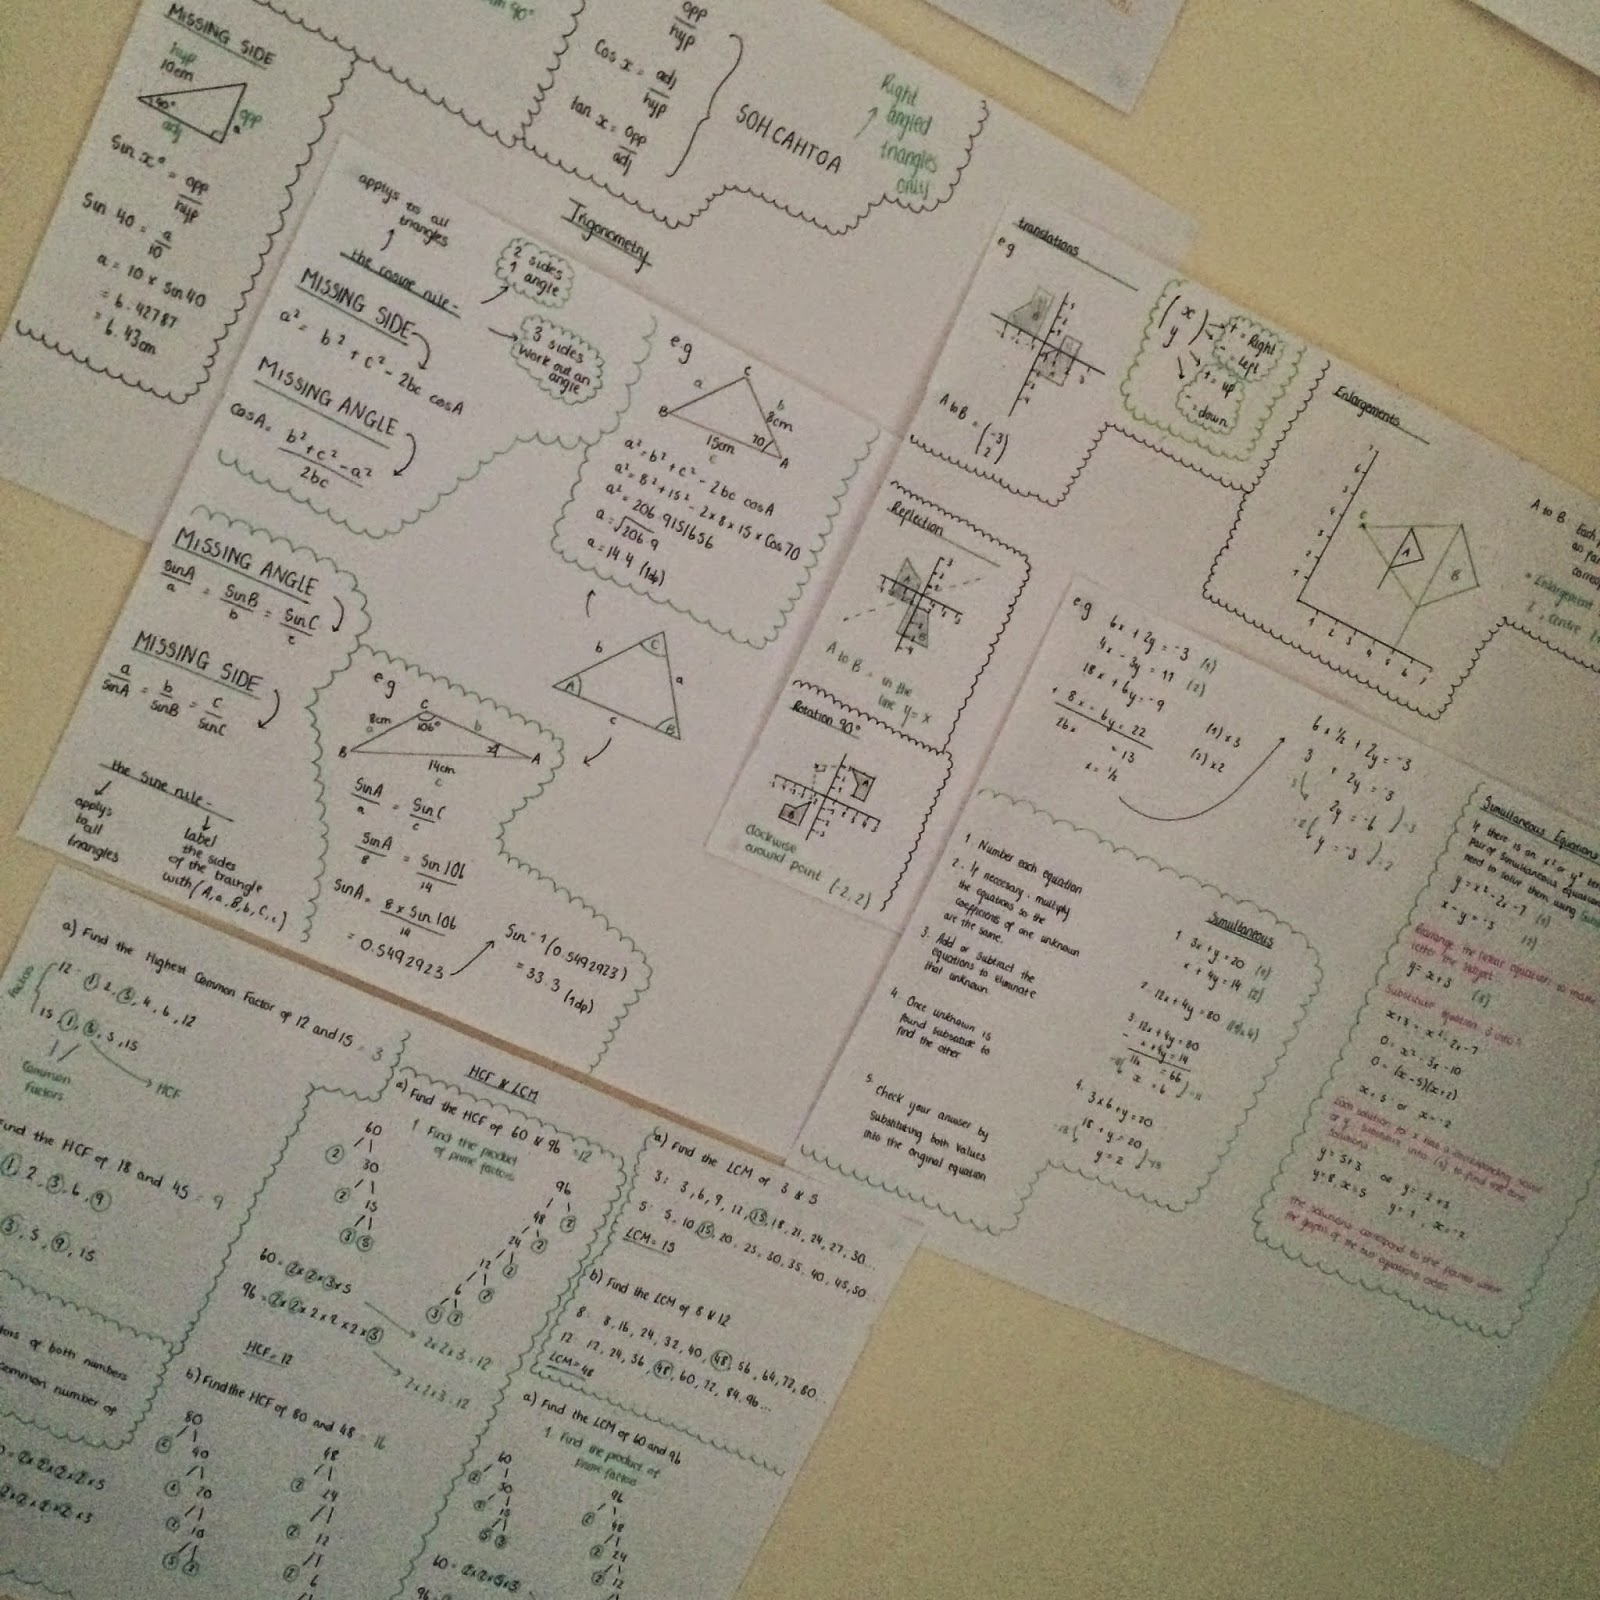 MISSING SIDE
hyp
10cm
40°
opp
a
adj
Sin x° = opp/hyp
Sin 40 = a/10
a = 10 x sin 40
= 6.42787
= 6.43cm
opp/hyp
Cos x = adj/hyp
tan x = opp/adj
SOHCAHTOA
Right
angled
triangles
only
Trigonometry
applys to all
triangles
the cosine rule-
2 sides
1 angle
3 sides
work out an
angle
MISSING SIDE
a² = b² + c² - 2bc cosA
MISSING ANGLE
cosA = b² + c² - a²/2bc
e.g
C
a
b
8cm
B
15cm
c
70
A
a² = b² + c² - 2bc cosA
a² = 8² + 15² - 2 x 8 x 15 x cos 70
a² = 206.9151656
a = √206.9
a = 14.4 (1dp)
MISSING ANGLE
sinA/a = SinB/b = SinC/c
MISSING SIDE
a/SinA = b/SinB = c/SinC
the sine rule-
applys
to all
triangles
label
the sides
of the traingle
with (A,a,B,b,C,c)
b
C
a
A
c
B
e.g
C
8cm
a
106°
b
B
A
14cm
c
SinA/a = SinC/c
SinA/8 = Sin106/14
SinA = 8 x Sin106/14
= 0.5492923
Sin⁻¹(0.5492923)
= 33.3 (1dp)
translations
e.g
A to B = (-3 2)
(x y)
+ = Right
- = left
+ = up
- = down
Reflection
A to B = in the
line y = x
Rotation 90°
clockwise
around point (-2,2)
Enlargements
A
B
C
A to B Each
e.g 6x + 2y = -3 (1)
4x - 3y = 11 (2)
18x + 6y = -9
(1) x 3
+ 8x - 6y = 22
(2) x 2
26x = 13
x = ½
6 x ½ + 2y = -3
3 + 2y = -3
2y = -6
y = -3
1. Number each equation
2. If necessary, multiply
the equations so the
coefficients of one unknown
are the same.
3. Add or subtract the
equations to eliminate
that unknown.
4. Once unknown is
found substitute to
find the other
5. Check your answer by
substituting both values
into the original equation
Simultaneous
1. 3x + y = 20 (1)
x + 4y = 14 (2)
2. 12x + 4y = 80 ((1) x 4)
3. 12x + 4y = 80
- x + 4y = 14
11x = 66
x = 6
4. 3 x 6 + y = 20
18 + y = 20
y = 2
Simultaneous Equations
If there is an x² or y²
pair of simultaneous equations
need to solve them using
y = x² - 2x - 7 (1)
x - y = -3 (2)
Rearrange the linear equation to make
y = x + 3 (3)
Substitute equation 3 into 1
x + 3 = x² - 2x - 7
0 = x² - 3x - 10
0 = (x - 5)(x + 2)
x = 5 or x = -2
y = 5 + 3 or y = -2 + 3
y = 8, x = 5
y = 1, x = -2
a) Find the Highest Common Factor of 12 and 15 = 3
factors
12: 1, 2, 3, 4, 6, 12
15: 1, 3, 5, 15
Common
Factors
HCF
Find the HCF of 18 and 45 = 9
1, 2, 3, 6, 9
3, 5, 9, 15
of both numbers
common number of
HCF & LCM
a) Find the HCF of 60 & 96 = 12
1. Find the product
of prime factors
60
2 30
2 15
3 5
96
48 2
24 2
12 2
6 2
3 2
60 = 2 x 2 x 3 x 5
96 = 2 x 2 x 2 x 2 x 2 x 3
2 x 2 x 3 = 12
2 x 2 x 3 = 12
HCF = 12
b) Find the HCF of 80 and 48 = 16
80
2 40
2 20
2 10
5 2
48
2 24
2 12
2 6
a) Find the LCM of 3 & 5
3: 3, 6, 9, 12, 15, 18, 21, 24, 27, 30...
5: 5, 10, 15, 20, 25, 30, 35, 40, 45, 50...
LCM = 15
b) Find the LCM of 8 & 12
8: 8, 16, 24, 32, 40, 48, 56, 64, 72, 80...
12: 12, 24, 36, 48, 60, 72, 84, 96...
LCM = 48
a) Find the LCM of 60 and 96
1. Find the product of
prime factors
60
2 30
2 15
5 3
96
2 48
2 24
2 12